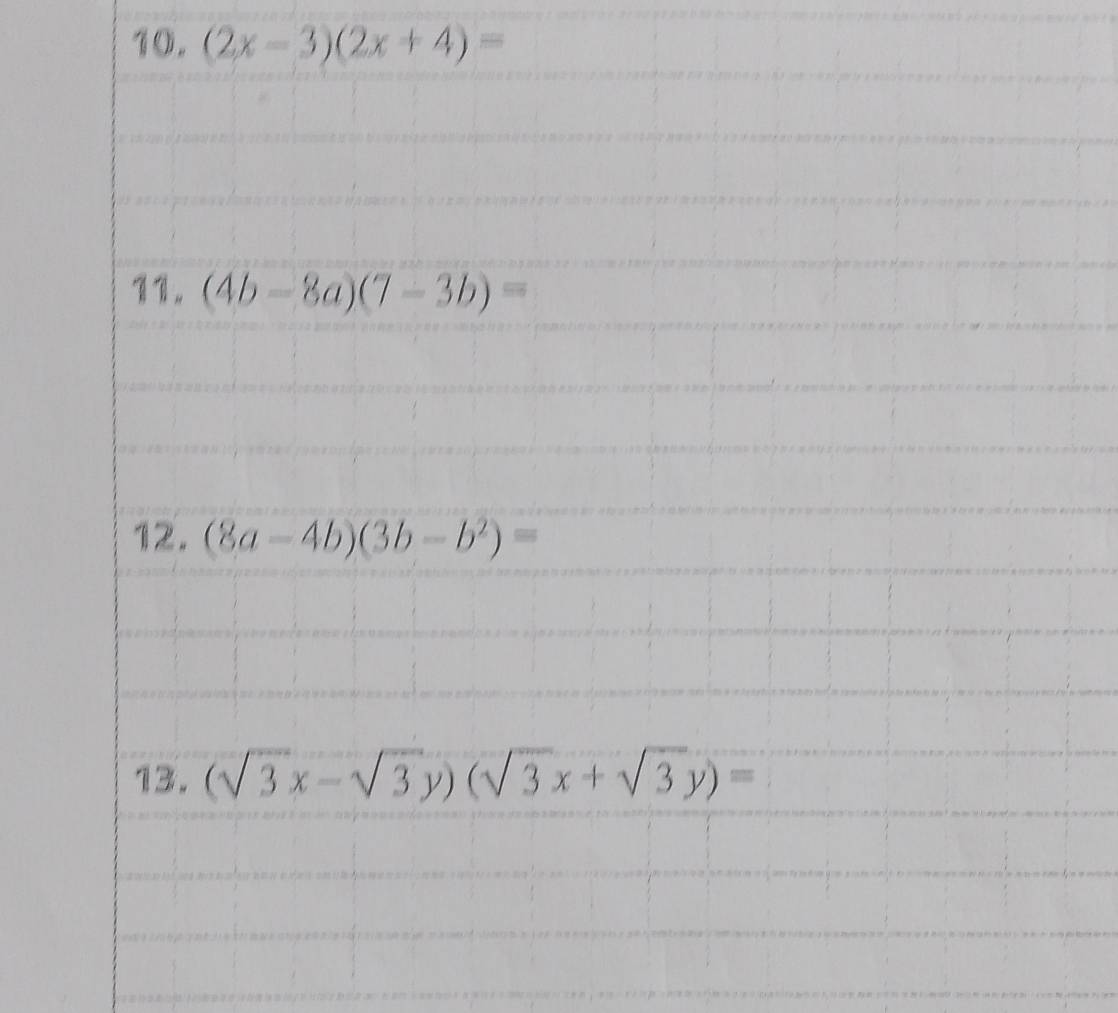 10. (2x - 3)(2x + 4) =
11. (4b - 8a)(7 - 3b) =
12. (8a - 4b)(3b - b²) =
13. (√3 x - √3 y) (√3 x + √3 y) =